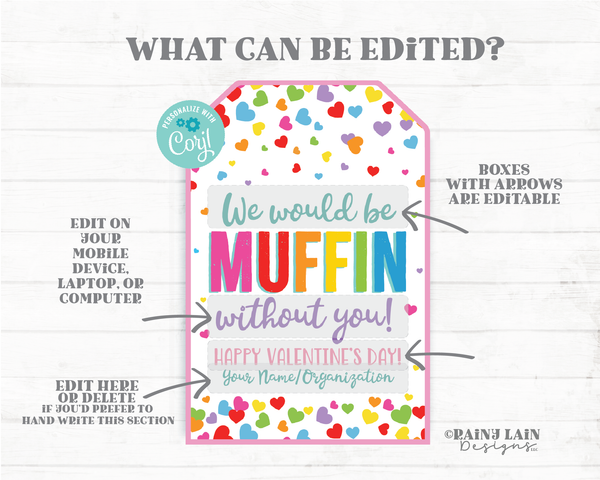 WHAT CAN BE EDITED?
PERSONALIZE WITH
Corjl
We would be
MUFFIN
without you!
HAPPY VALENTINE'S DAY!
Your Name/Organization
BOXES
WITH ARROWS
ARE EDITABLE
EDIT ON
YOUR
MOBILE
DEVICE,
LAPTOP, OR
COMPUTER
EDIT HERE
OR DELETE
IF YOU'D PREFER TO
HAND WRITE THIS SECTION
©RAINY LAIN
Designs LLC